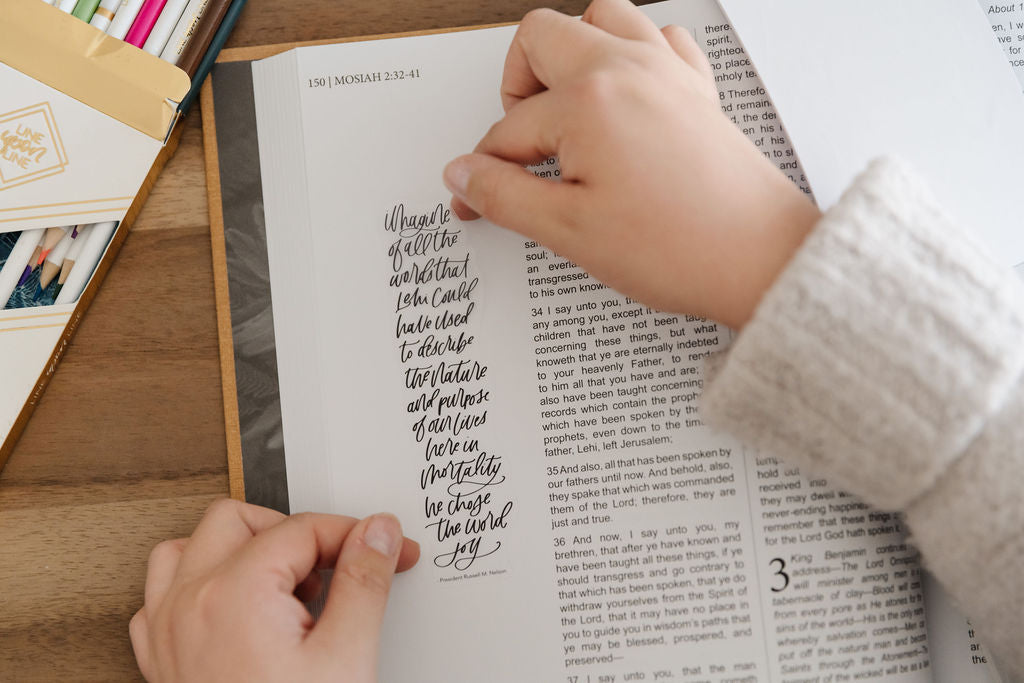 LINE
upon
LINE
150 | MOSIAH 2:32-41
Imagine
of all the
words that
Lehi could
have used
to describe
the nature
and purpose
of our lives
here in
mortality
he chose
the word
joy
- President Russell M. Nelson
soul;
an everla
transgressed
to his own know
34 I say unto you,
any among you, except it
children that have not been taug
concerning these things, but what
knoweth that ye are eternally indebted
to your heavenly Father, to rend
to him all that you have and are;
also have been taught concerning
records which contain the proph
which have been spoken by the
prophets, even down to the tim
father, Lehi, left Jerusalem;
35 And also, all that has been spoken by
our fathers until now. And behold, also,
they spake that which was commanded
them of the Lord; therefore, they are
just and true.
36 And now, I say unto you, my
brethren, that after ye have known and
have been taught all these things, if ye
should transgress and go contrary to
that which has been spoken, that ye do
withdraw yourselves from the Spirit of
the Lord, that it may have no place in
you to guide you in wisdom's paths that
ye may be blessed, prospered, and
preserved—
37 I say unto you, that the man
there,
spirit,
righteou
no place
unholy te
8 Therefo
and remain
d, the de
en his i
of his
hold out
received into
they may dwell
never-ending happine
remember that these things
for the Lord God hath spoken
3 King Benjamin continues
address—The Lord Omnipot
will minister among men
tabernacle of clay—Blood will
from every pore as He atones for
sins of the world—His is the only
whereby salvation comes—Men
put off the natural man and become
Saints through the Atonement—The
torment of the wicked will be as a
About 1